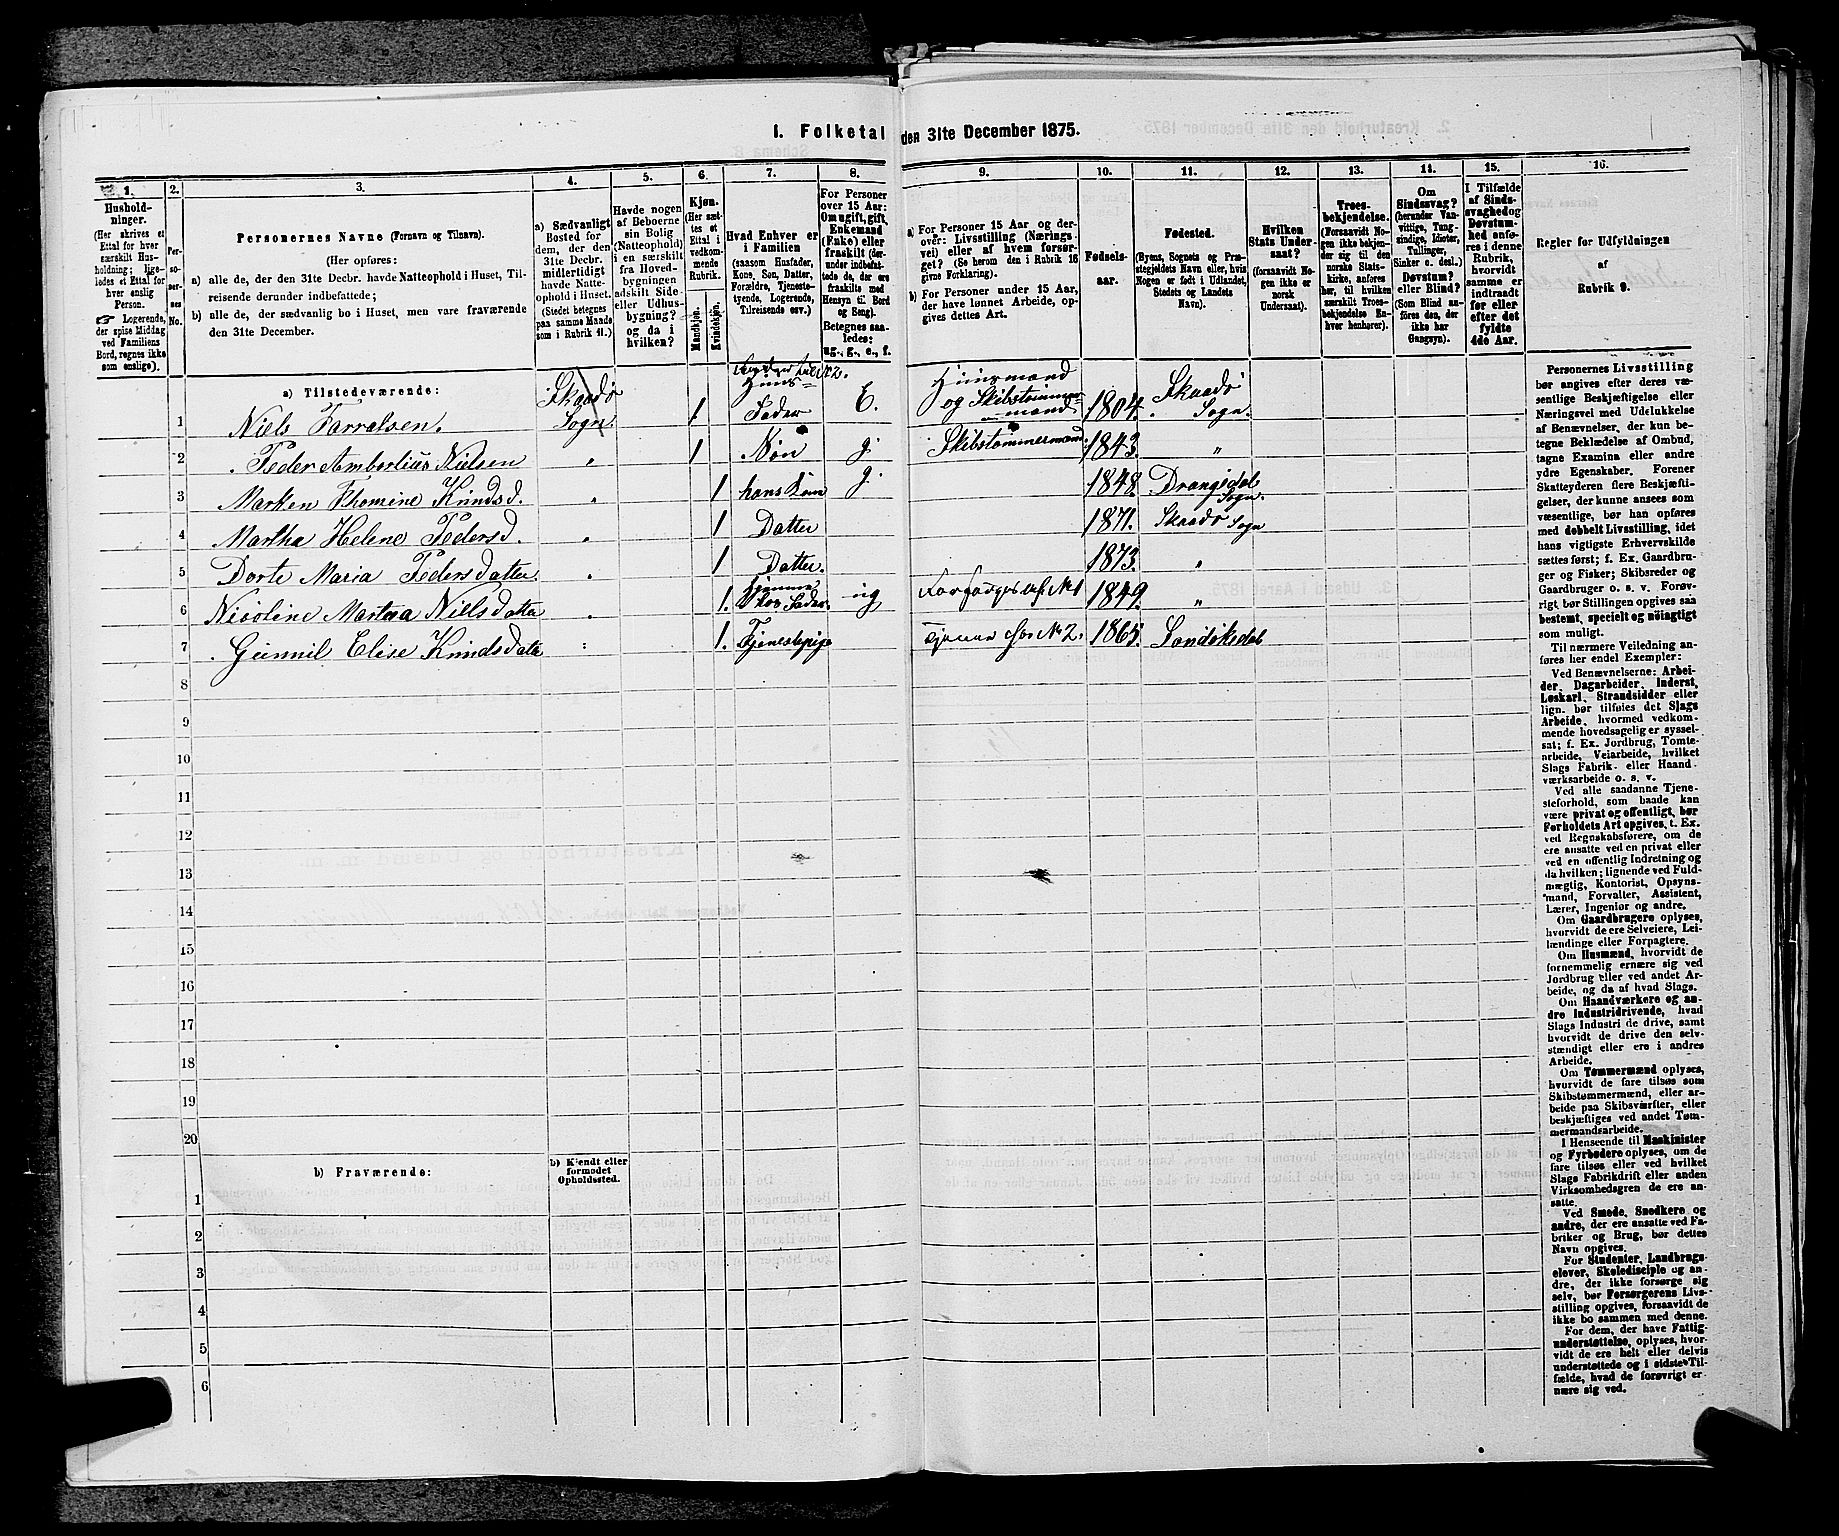 1. Folketal den 31te December 1875.
1. 2. 3. 4. 5. 6. 7. 8. 9. 10. 11. 12. 13. 14. 15. 16.
Hushold-
ninger.
(Her skrives et
Ettal for hver
særskilt Hus-
holdning; lige-
ledes et Ettal for
hver enslig
Person.
☞ Logerende,
der spise Middag
ved Familiens
Bord, regnes ikke
som enslige).
Per-
so-
ner-
nes
No.
Personernes Navne (Fornavn og Tilnavn).
(Her opføres:
a) alle de, der den 31te Decbr. havde Natteophold i Huset, Til-
reisende derunder indbefattede;
b) alle de, der sædvanlig bo i Huset, men vare fraværende
den 31te December.
a) Sædvanligt
Bosted for
dem, der den
31te Decbr.
midlertidigt
havde Natte-
ophold i Huset.
(Stedet betegnes
paa samme Maade
som i Rubrik 11.)
Havde nogen
af Beboerne
sin Bolig
(Natteophold)
i en særskilt
fra Hoved-
bygningen
adskilt Side-
eller Udhus-
bygning?
og da i
hvilken?
Kjøn.
(Her sæt-
tes et
Ettal i
vedkom-
mende
Rubrik.
Mandkjøn.
Kvindekjøn.
Hvad Enhver er
i Familien
(saasom Husfader,
Kone, Søn, Datter,
Forældre, Tjeneste-
tyende, Logerende,
Tilreisende osv.)
For Personer
over 15 Aar:
Om ugift, gift,
Enkemand
(Enke) eller
fraskilt (der-
under indbefat-
tede de, der ere
fraskilte med
Hensyn til Bord
og Seng).
Betegnes saa-
ledes:
ug., g., e., f.
a) For Personer 15 Aar og der-
over: Livsstilling (Nærings-
vei) eller af hvem forsør-
get? (Se herom den i Rubrik 16
givne Forklaring).
b) For Personer under 15 Aar,
der have lønnet Arbeide, op-
gives dettes Art.
Fødsels-
aar.
Fødested.
(Byens, Sognets og Præ-
stegjeldets Navn eller, hvis
Nogen er født i Udlandet,
Stedets og Landets
Navn).
Hvilken
Stats Under-
saat?
(forsaavidt No-
gen ikke er
norsk
Undersaat).
Troes-
bekjendelse.
(Forsaavidt No-
gen ikke bekjen-
der sig til den
norske Stats-
kirke, anføres
her, til hvilken
særskilt Troes-
bekjendelse En-
hver henhører).
Om
Sindssvag?
(herunder Van-
vittige, Tung-
sindige, Idioter,
Tullinger,
Sinker o. desl.)
Døvstum?
eller Blind?
(Som Blind an-
føres den, der
ikke har
Gangsyn).
I Tilfælde
af Sinds-
svaghed og
Døvstum-
hed anfø-
res i denne
Rubrik,
hvorvidt
samme er
indtraadt
før eller
efter det
fyldte
4de Aar.
Regler for Udfyldningen
af
Rubrik 9.
a) Tilstedeværende:
1 Niels Tarralsen. Skaadø Sogn. 1 Huus- Fader E. Huusmand og Skibstømmer-mand 1804. Skaadø Sogn.
2 Peder Ambortius Nielsen " 1 Søn g. Skibstømmermand 1843. "
3 Marken Thomine Knudsd. " 1 hans Kone g. 1848. Drangedal Sogn.
4 Martha Helene Pedersd. " 1 Datter 1871. Skaadø Sogn
5 Dorte Maria Pedersdatter. " 1 Datter. 1873. "
6 Nicoline Martha Nielsdatter " 1. hos Fader ug Forsørges af No 1 1849. "
7 Gunnil Elise Knudsdatr " 1. Tjenestepige Tjener hos No 2. 1865. Sandøkedal
8
9
10
11
12
13
14
15
16
17
18
19
20
b) Fraværende:
b) Kjendt eller
formodet
Opholdssted.
1
2
3
4
5
6
Personernes Livsstilling
bør angives efter deres væ-
sentlige Beskjæftigelse eller
Næringsvei med Udelukkelse
af Benævnelser, der kun be-
tegne Beklædelse af Ombud,
tagne Examina eller andre
ydre Egenskaber. Forener
Skatteyderen flere Beskjæfti-
gelser, der kunne ansees som
væsentlige, bør han opføres
med dobbelt Livsstilling, idet
hans vigtigste Erhvervskilde
sættes først; f. Ex. Gaardbru-
ger og Fisker; Skibsreder og
Gaardbruger o. s. v. Forøv-
rigt bør Stillingen opgives saa
bestemt, specielt og nøiagtigt
som muligt.
Til nærmere Veiledning an-
føres her endel Exempler:
Ved Benævnelserne: Arbei-
der, Dagarbeider, Inderst,
Løskarl, Strandsidder eller
lign. bør tilføies det Slags
Arbeide, hvormed vedkom-
mende hovedsagelig er syssel-
sat; f. Ex. Jordbrug, Tomte-
arbeide, Veiarbeide, hvilket
Slags Fabrik- eller Haand-
værksarbeide o. s. v.
Ved alle saadanne Tjene-
steforhold, som baade kan
være privat og offentligt, bør
Forholdets Art opgives, t. Ex.
ved Regnskabsførere, om de
ere ansatte ved en privat eller
ved en offentlig Indretning og
da hvilken; lignende ved Fuld-
mægtig, Kontorist, Opsyns-
mand, Forvalter, Assistent,
Lærer, Ingeniør og andre.
Om Gaardbrugere oplyses,
hvorvidt de ere Selveiere, Lei-
lændinge eller Forpagtere.
Om Husmænd, hvorvidt de
fornemmelig ernære sig ved
Jordbrug eller ved andet Ar-
beide, og da af hvad Slags.
Om Haandværkere og an-
dre Industridrivende, hvad
Slags Industri de drive, samt
hvorvidt de drive den selv-
stændigt eller ere i andres
Arbeide.
Om Tømmermænd oplyses,
hvorvidt de fare tilsøs som
Skibstømmermænd, eller ar-
beide paa Skibsværfter, eller
beskjæftiges ved andet Tøm-
mermandsarbeide.
I Henseende til Maskinister
og Fyrbødere oplyses, om de
fare tilsøs eller ved hvilket
Slags Fabrikdrift eller anden
Virksomhedsgren de ere an-
satte.
Ved Smede, Snedkere og
andre, der ere ansatte ved Fa-
briker og Brug, bør dettes
Navn opgives.
For Studenter, Landbrugs-
elever, Skoledisciple og an-
dre, der ikke forsørge sig
selv, bør Forsørgerens Livs-
stilling opgives, forsaavidt de
ikke bo sammen med denne.
For dem, der have Fattig-
understøttelse, oplyses, hvor-
vidt de ere helt eller delvis
understøttede og i sidste Til-
fælde, hvad de forøvrigt er-
nære sig ved.